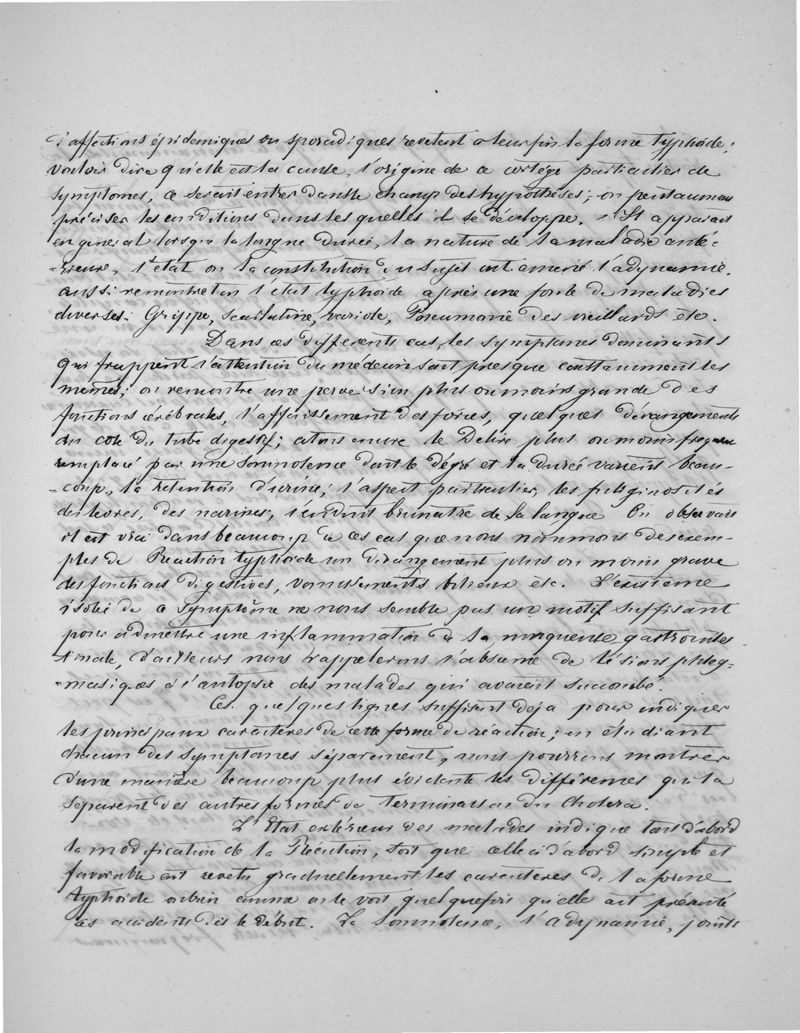 d'affections épidemiques ou sporadiques revetent a leur fin la forme typhoide;
vouloir dire qu'elle est la cause, l'origine de ce cortége particulier de
symptomes, ce serait entrer dans le champ des hypothéses; on peut au moins
préciser les conditions dans lesquelles il se développe. Il apparait
en géneral lorsque la longue durée, la nature de la maladie anté-
-rieure, l'état ou la constitution du sujet ont amené l'adynamie.
aussi rencontre ton l'état typhoide après une foule de maladies
diverses. Grippe, Scarlatine, variole, Pneumonie des vieillards etc.
Dans ces différents cas, les symptomes dominants
qui frappent l'attention du médecin sont presque constamment les
mêmes; on rencontre une perversion plus ou moins grande des
fonctions cérébrales, l'affaissement des forces, quelques dérangements
du coté du tube digestif; a tous encore le Délire plus ou moins frequent
remplacé par une somnolence dont le dégré et la durée varient beau-
-coup, la retention d'urine; l'aspect particulier, les fuliginosités
des levres, des narines, l'enduit brunatre de la langue On observait
il est vrai dans beaucoup de ces cas que nous nommons des exem-
ples de Reaction typhoide un dérangement plus ou moins grave
des fonctions digestives, vomissements bilieux etc. L'existence
isolée de ce symptôme ne nous semble pas un motif suffisant
pour admettre une inflammation de la muqueuse gastrointes-
-tinale, d'ailleurs nous rappelerons l'absence de lésions phleg-
-masiques à l'autopsie des malades qui avaient succombé.
Ces quelques lignes suffisent deja pour indiquer
les principaux caractères de cette forme de réaction; en étudiant
chacun des symptomes séparement, nous pourrons montrer
d'une manière beaucoup plus évidente les différences qui la
séparent des autres formes de terminaison du Cholera.
L'Etat extérieur des malades indique tout d'abord
la modification de la Réaction, soit que celle ci d'abord simple et
favorable ait revetu graduellement les caractères de la forme
typhoide ou bien comme on le voit quelquefois qu'elle ait présenté
ces accidents dès le début. La Somnolence, l'adynamie, joints